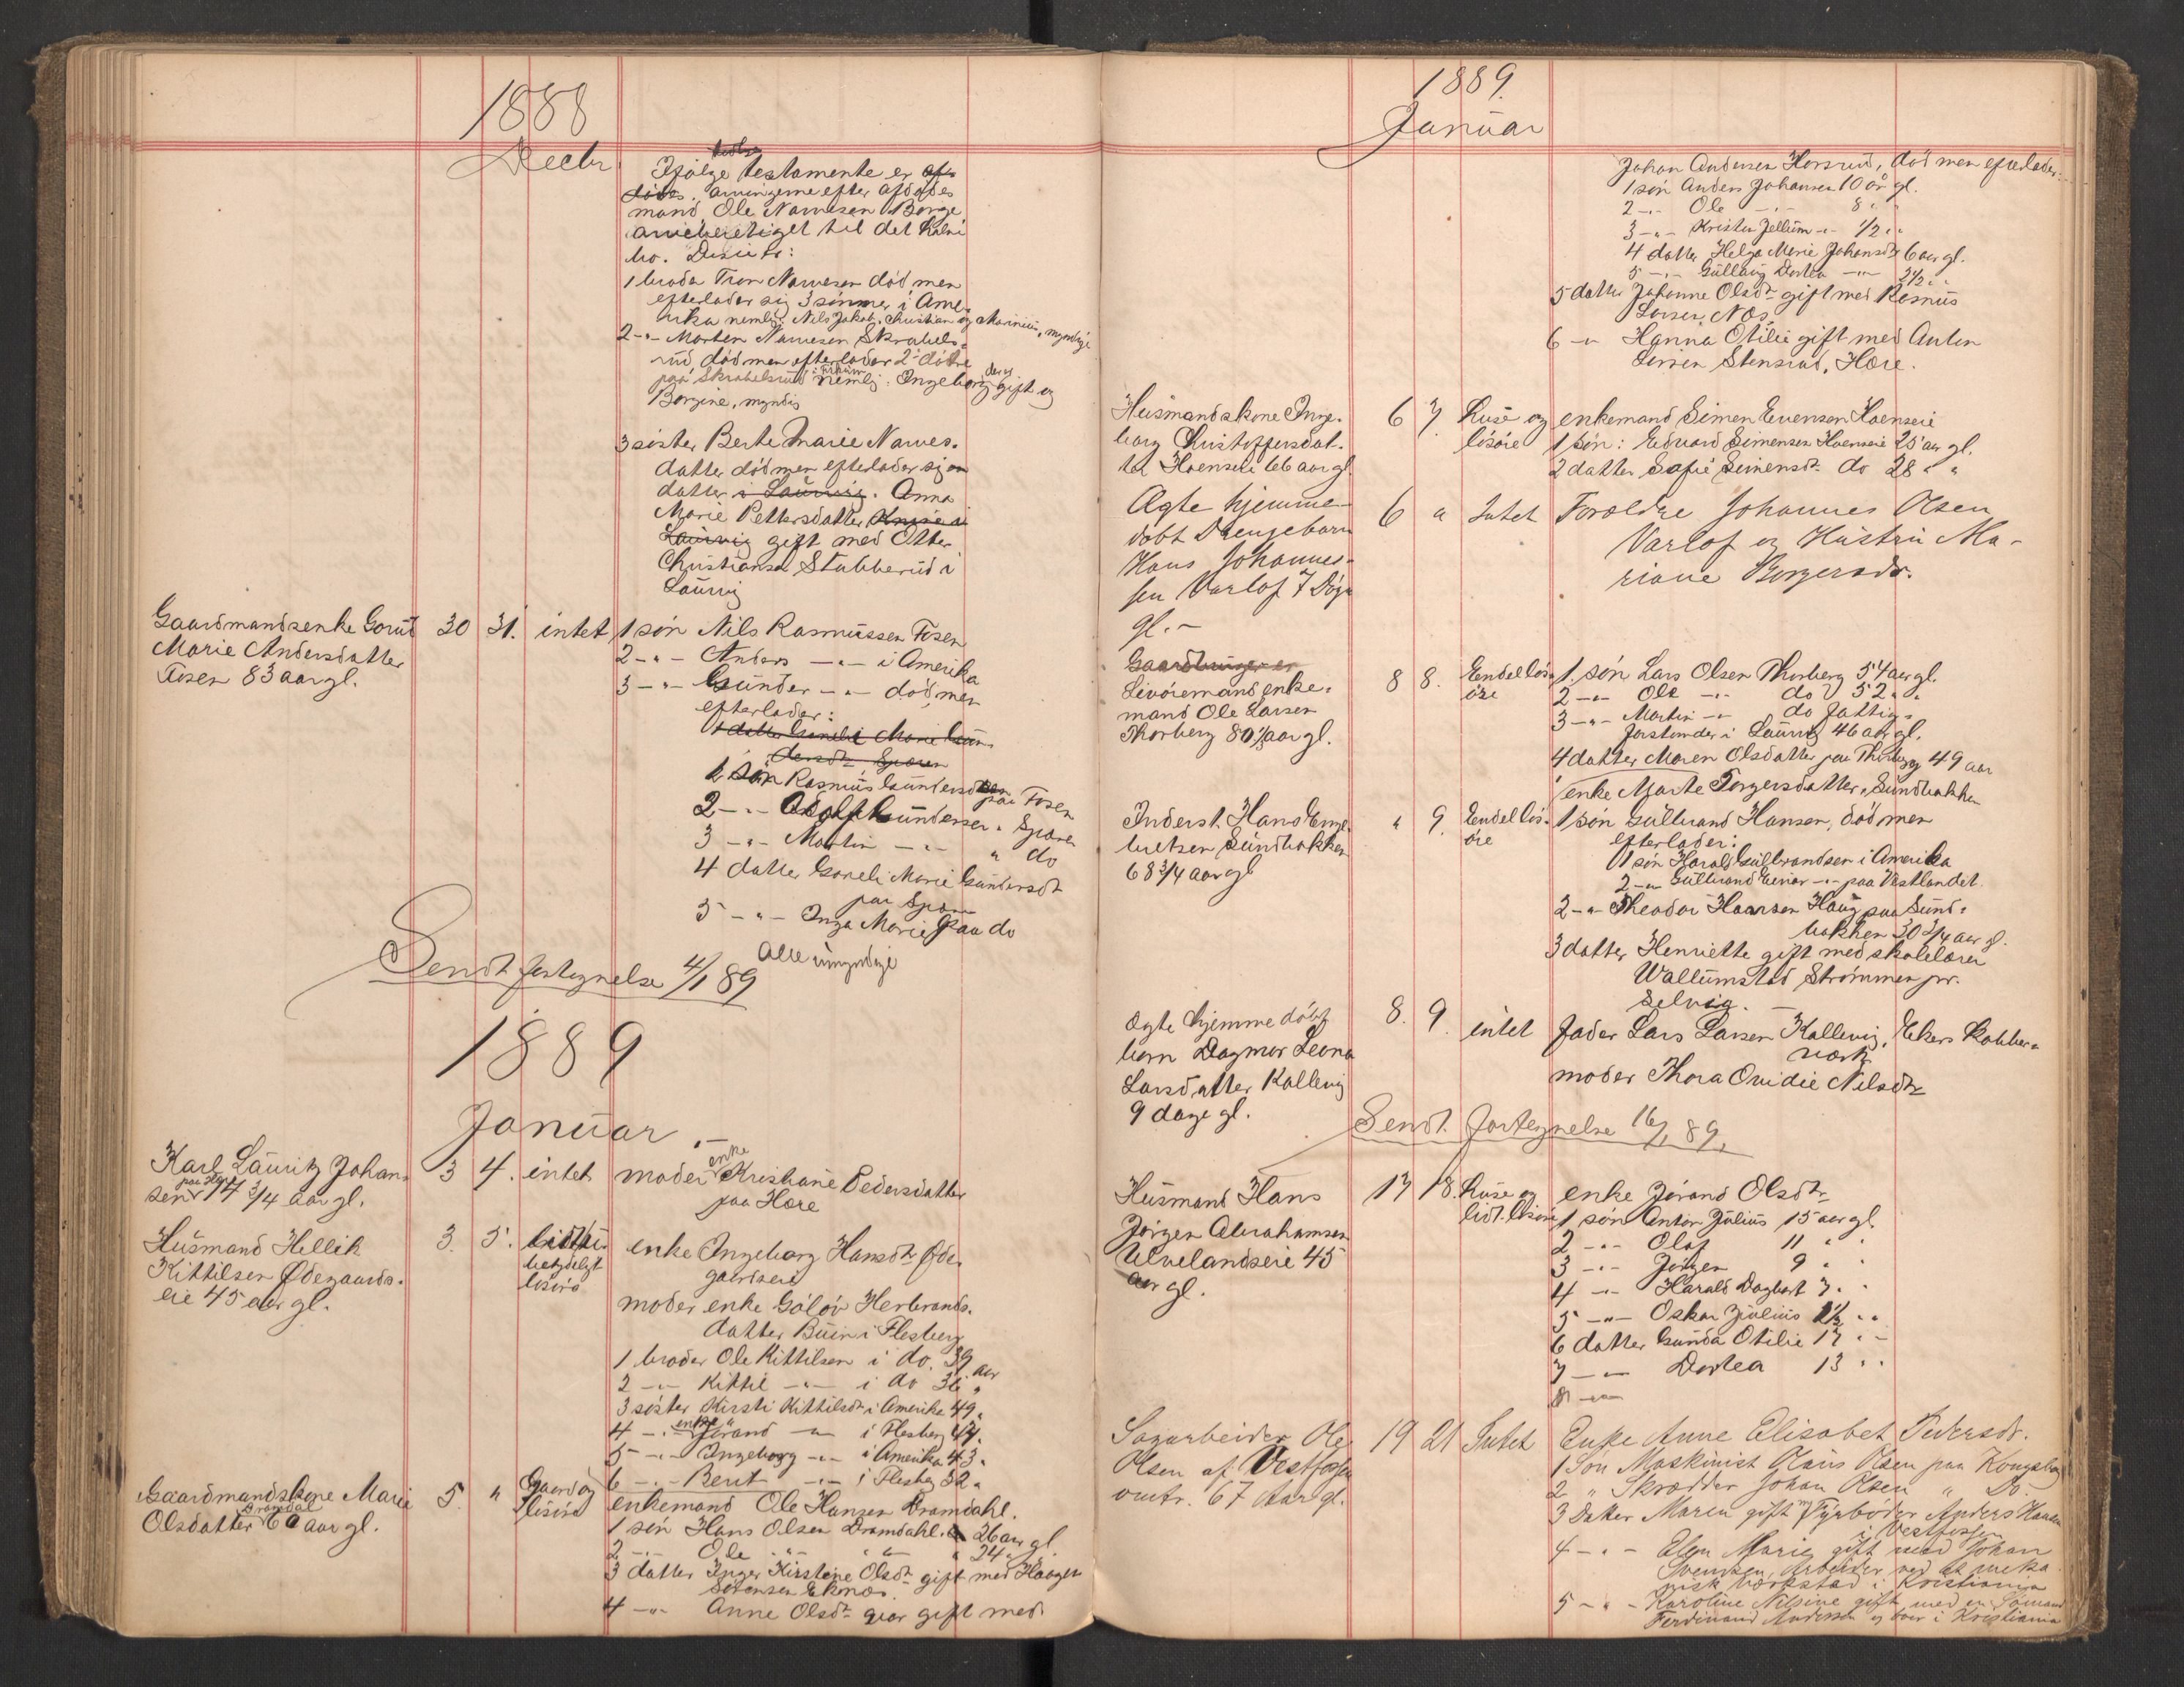 1888
Decbr.
Ifølge testamente er
arvingerne efter afdødes
mand Ole Narvesen Borge
arveberetiget til det halve
bo. Disse er:
1 broder Tron Narvesen død, men
efterlader sig 3 sønner i Ame-
rika nemlig Nils Jakob, Christian og Marinius, myndige
2 -"- Morten Narvesen Skrabels-
rud, død men efterlader 2 døtre
paa Skrabelsrud nemlig: Ingeborg gift og
Borgine, myndig
3 søster Berte Marie Narves-
datter død men efterlader sig en
datter i Laurvig. Anna
Marie Pettersdatter
Laurvig gift med Otter
Christiansen Stubberud i
Laurvig
Gaardmandsenke Gorud 30 31. intet 1 søn Nils Rasmussen Fosen
Marie Andersdatter 2 -"- Anders -"- i Amerika
Fosen 83 aar gl. 3 -"- Gunder -"- død, men
efterlader:
1 datter Goneli Marie Gun-
dersdt. Sporen
1 søn Rasmus Gunders paa Fosen
2 -"- Adolf Gundersen " Sporen
3 -"- Martin -"- " do
4 datter Goneli Marie Gundersdt
paa Sporen
5 -"- Inga Marie paa do
Alle umyndige
Sendt fortegnelse 4/1 89
1889
Januar.
Karl Lauritz Johan- 3 4. intet moder enke Kristiane Pedersdatter
sen paa Hore 14 3/4 aar gl. paa Hore
Husmand Hellik 3. 5. lidt u- enke Ingeborg Hansdt. Øde-
Kittilsen Ødegaards- betydeligt gaardseie
eie 45 aar gl. løsøre moder enke Gølør Herbrands-
datter Buin i Flesberg
1 broder Ole Kittilsen i do. 39 aar
2 -"- Kittil -"- i do 36 "
3 søster Kirsti Kittilsdt. i Amerika 49 "
4 -"- enke Jørand -"- i Flesberg 47 "
5 -"- Ingeborg -"- i Amerika 43 "
6 -"- Berit -"- i Flesberg 32 "
Gaardmandskone Marie 5. " Gaard og enkemand Ole Hansen Dramdahl.
Olsdatter Dramdal 60 aar gl. løsøre 1 søn Hans Olsen Dramdahl. 26 aar gl.
2 -"- Ole -"- " 24 "
3 datter Inger Kirstine Olsdt. gift med Haagen
Sørensen Eknes.
4 -"- Anne Olsdt. gift med
1889.
Januar
Johan Andersen Horsrud, død men efterlader:
1 søn Anders Johansen 10 aar gl.
2 -"- Ole -"- 8 " "
3 -"- Krister Jellum -"- 1/2 " "
4 datter Helga Marie Johansdt. 6 aar gl.
5 -"- Gullaug Dortea -"- 2 1/2 " "
5 datter Johanne Olsdt. gift med Rasmus
Larsen Næs
6 -"- Hanna Otilie gift med Anton
Larsen Stensrud, Hore.
Husmandskone Inge- 6 7. huse og enkemand Simen Evensen Hoenseie
borg Kristoffersdat- løsøre 1 søn: Edvard Simensen Hoenseie 25 aar gl.
ter Hoenseie 66 aar gl 2 datter Sofie Simensdt. do 28 " "
Ægte hjemme- 6 " Intet Forældre Johannes Olsen
døbt Drengebarn Varlof og Hustru Ma-
Hans Johannes- riane Borgersdr.
sen Varlof 7 Døgn
gl. -
Gaardbruger
Livøremand enke- 8 8. Endel løs- 1. søn Lars Olsen Thorberg 54 aar gl.
mand Ole Larsen øre 2 -"- Ole -"- do 52 " "
Thorberg 80 1/2 aar gl. 3 -"- Martin -"- do fattig-
forstander i Laurvig 46 aar gl.
4 datter Maren Olsdatter paa Thorberg 49 aar
Inderst Hans Enge- " 9. Endel løs- enke Marte Torgersdatter, Sundbakken
bretsen Sundbakken øre 1 søn Gulbrand Hansen, død men
68 3/4 aar gl efterlader:
1 søn Harald Gulbrandsen i Amerika
2 -"- Gulbrand Einar -"- paa Vestlandet.
2 -"- Theodor Hansen Haug paa Sund-
bakken 30 3/4 aar gl.
3 datter Henriette gift med skolelærer
Wallumstad Strømmen pr.
Selvig.
Ægte hjemmedøbt 8. 9. intet fader Lars Larsen Kallevig, Ekers Kobber-
barn Dagmar Leona værk
Larsdatter Kallevig moder Thora Ovidie Nilsdtr
9 dage gl.
Sendt fortegnelse 16/1 89.
Husmand Hans 17 18. huse og enke Jørand Olsdtr
Jørgen Abrahamsen lidt løsøre 1 søn Anton Julius 15 aar gl.
Ulvelandseie 45 2 -"- Olaf 11 " "
aar gl. 3 -"- Jørgen 9 " "
4 -"- Harald Dagbart 7 " "
5 -"- Oskar Julius 1 1/2 " "
6 datter Gunda Otilie 17 " "
7 -"- Dortea 13 " "
8 -"-
Sagarbeider Ole 19 21 Intet Enke Anne Elisabet Pedersdr.
Olsen af Vestfossen 1 Søn Maskinist Olaus Olsen paa Kongsberg
omtr. 67 Aar gl. 2 " Skrædder Johan Olsen " Do.
3 Datter Maren gift m. Fyrbøder Anders Hansen
i Vestfossen
4 -"- Elen Marie gift med Johan
Svensken, Arbeider ved et meka-
nisk Værksted i Kristiania
5 -"- Karoline Nilsine gift med en Sømand
Ferdinand Andersen og boer i Kristiania